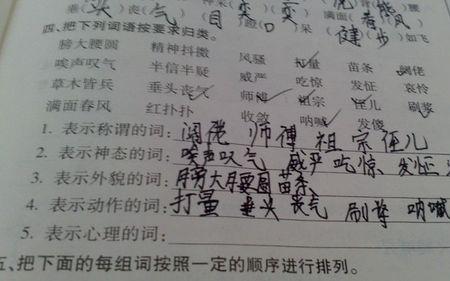 垂(头)丧(气) 目 口 满面(春风)
健步如飞
四、把下列词语按要求归类。
膀大腰圆 精神抖擞 风骚 打量 苗条 阔佬
唉声叹气 半信半疑 威严 吃惊 发怔 哀怜
草木皆兵 垂头丧气 师傅 祖宗 侄儿 刷浆
满面春风 红扑扑 收敛 呐喊 发傻
1. 表示称谓的词：阔佬 师傅 祖宗 侄儿
2. 表示神态的词：唉声叹气 威严 吃惊 发怔
3. 表示外貌的词：膀大腰圆 苗条
4. 表示动作的词：打量 垂头丧气 刷浆 呐喊
5. 表示心理的词：
五、把下面的每组词按照一定的顺序进行排列。